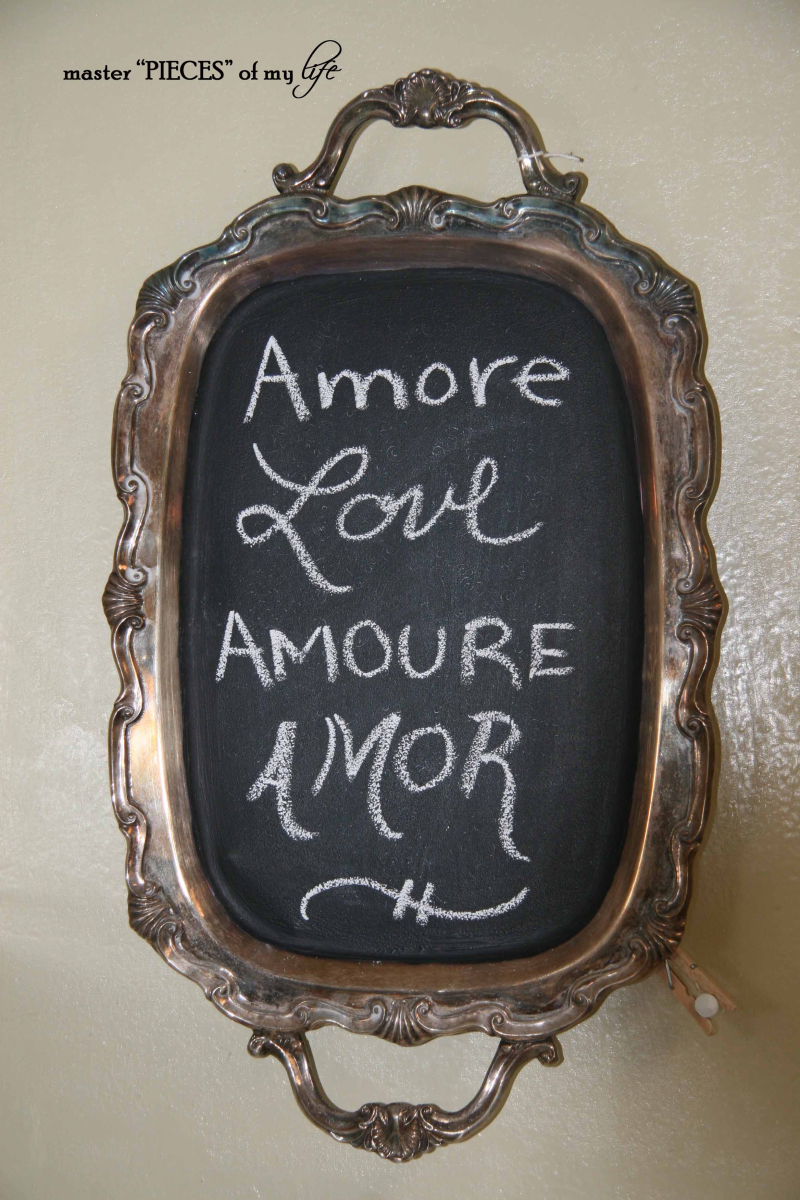 master “PIECES” of my life
Amore
Love
AMOURE
AMOR